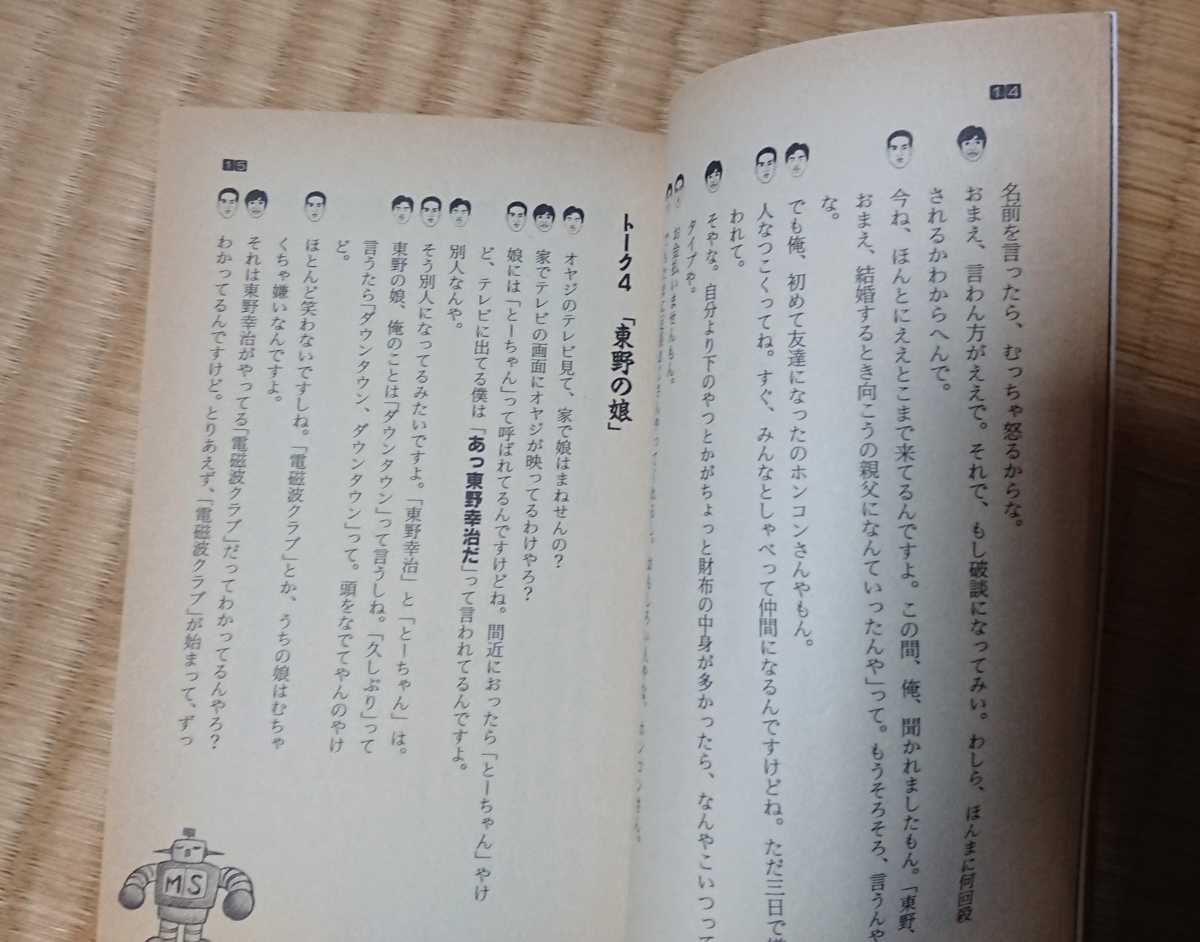 14
名前を言ったら、むっちゃ怒るからな。
おまえ、言わん方がええで。それで、もし破談になってみい。わしら、ほんまに何回殺
されるかわからへんで。
今ね、ほんとにええとこまで来てるんですよ。この間、俺、聞かれましたもん。「東野、
おまえ、結婚するとき向こうの親父になんていったんや」って。もうそろそろ、言うんや
な。
でも俺、初めて友達になったのホンコンさんやもん。
人なつこくってね。すぐ、みんなとしゃべって仲間になるんですけどね。ただ三日で嫌
われて。
そやな。自分より下のやつとかがちょっと財布の中身が多かったら、なんやこいつって
タイプや。
お会払いませんもん。
15
トーク4 「東野の娘」
オヤジのテレビ見て、家で娘はまねせんの?
家でテレビの画面にオヤジが映ってるわけやろ?
娘には「とーちゃん」って呼ばれてるんですけどね。間近におったら「とーちゃん」やけ
ど、テレビに出てる僕は「あっ東野幸治だ」って言われてるんですよ。
別人なんや。
そう別人になってるみたいですよ。「東野幸治」と「とーちゃん」は。
東野の娘、俺のことは「ダウンタウン」って言うしね。「久しぶり」って
言うたら「ダウンタウン、ダウンタウン」って。頭をなでてやんのやけ
ど。
ほとんど笑わないですしね。「電磁波クラブ」とか、うちの娘はむちゃ
くちゃ嫌いなんですよ。
それは東野幸治がやってる「電磁波クラブ」だってわかってるんやろ?
わかってるんですけど。とりあえず、「電磁波クラブ」が始まって、ずっ
MS